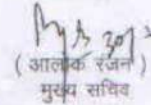 ( आलोक रंजन )
मुख्य सचिव